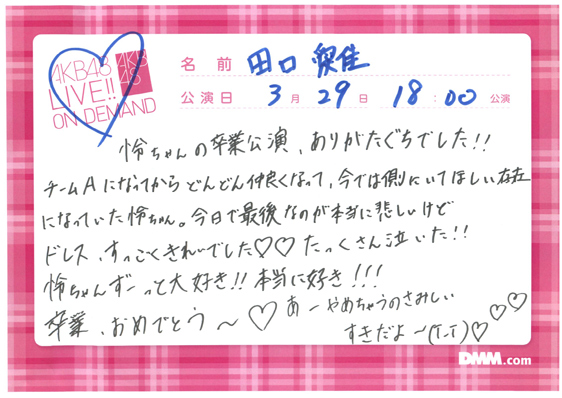 AKB48
LIVE!!
ON DEMAND
AKB
48
名前 田口愛佳
公演日 3月29日 18:00公演
怜ちゃんの卒業公演、ありがたぐちでした!!
チームAになってからどんどん仲良くなって、今では側にいてほしい存在
になっていた怜ちゃん。今日で最後なのが本当に悲しいけど
ドレス、すっごくきれいでした♡♡ たっくさん泣いた!!
怜ちゃんずーっと大好き!!本当に好き!!!
卒業、おめでとう〜♡ あーやめちゃうのさみしい
すきだよ〜(T-T)♡♡♡
DMM.com